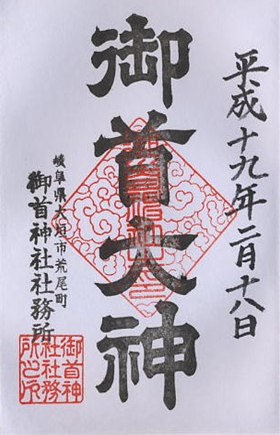 平成十九年二月十八日
御首大神
岐阜県大垣市荒尾町
御首神社社務所
御首神
社社務
所之印